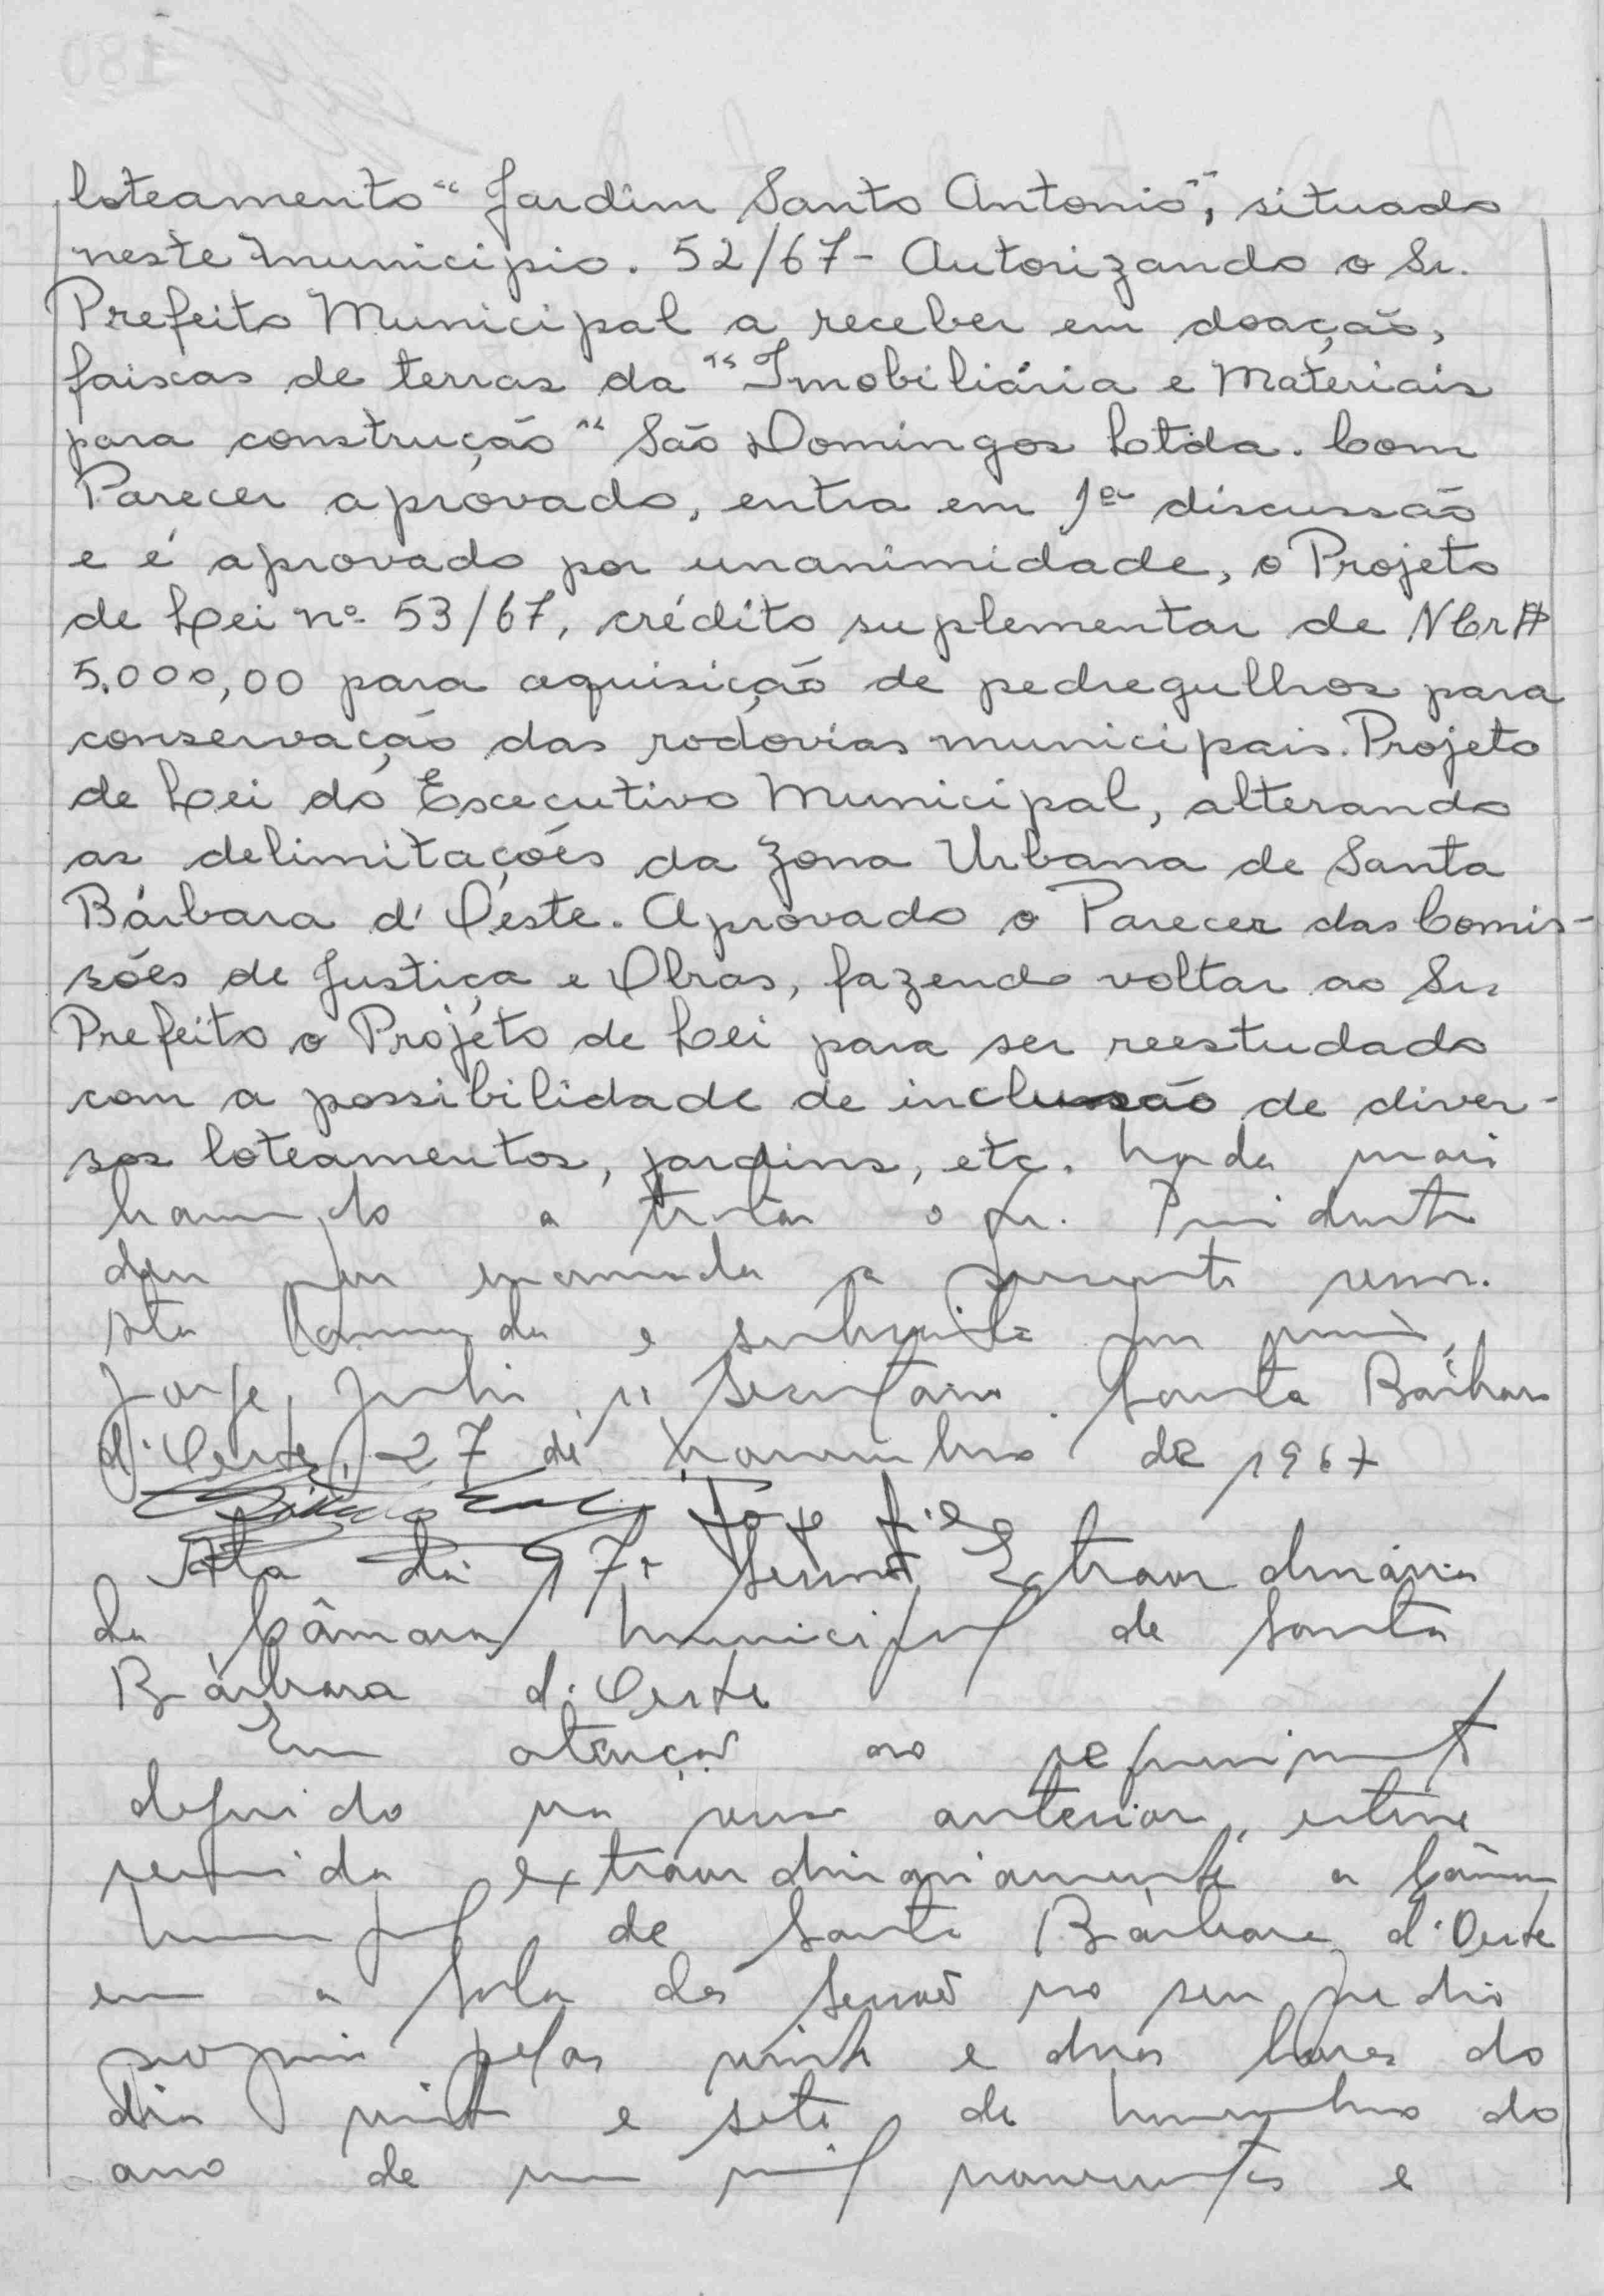 loteamento "Jardim Santo Antonio", situado
neste município. 52/67 - Autorizando o Sr.
Prefeito Municipal a receber em doação,
faixas de terras da "Imobiliária e Materiais
para construção" São Domingos Ltda. Com
Parecer aprovado, entra em 1ª discussão
e é aprovado por unanimidade, o Projeto
de Lei nº 53/67, crédito suplementar de NCr$
5.000,00 para aquisição de pedregulhos para
conservação das rodovias municipais. Projeto
de Lei do Executivo Municipal, alterando
as delimitações da zona Urbana de Santa
Bárbara d'Oéste. Aprovado o Parecer das Comis-
sões de Justiça e Obras, fazendo voltar ao Sr.
Prefeito o Projéto de Lei para ser reestudado
com a possibilidade de inclusão de diver-
sos loteamentos, jardins, etc. Nada mais
havendo a tratar o Sr. Presidente
deu por encerrada a presente
e subscrita por mim,
Jorge Secretário. Santa Bárbara
d'Oeste, 27 de novembro de 1967
José
Ata da 97ª Sessão Extraordinária
da Câmara Municipal de Santa
Bárbara d'Oeste
Em atenção ao requerimento
deferido na anterior, esteve
reunida extraordinariamente a Câmara
Municipal de Santa Bárbara d'Oeste
em a sala das Sessões no seu prédio
proprio pelas vinte e duas horas do
dia vinte e sete de novembro do
ano de um mil novecentos e